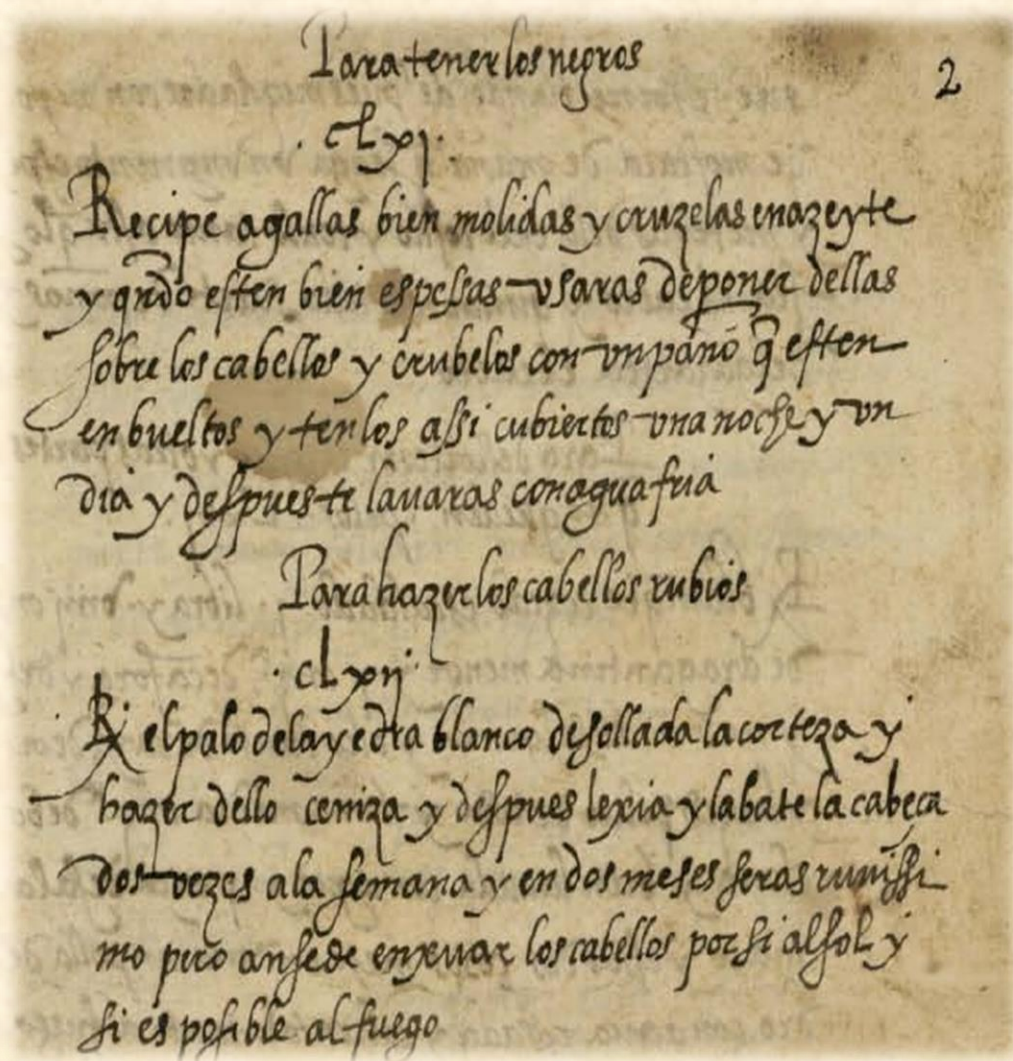 Para tener los negros
2
. clxi .
Recipe agallas bien molidas y cruzelas en azeyte
y qndo esten bien espessas vsaras de poner dellas
sobre los cabellos y crubelos con vn pano q̃ esten
enbueltos y tenlos assi cubiertos vna noche y vn
dia y despues te lauaras con agua fria
Para hazer los cabellos rubios
. clxij .
R el palo de la yedra blanco desollada la corteza y
hazer dello ceniza y despues lexia y labate la cabeça
dos vezes a la semana y en dos meses seras ruuissi
mo pero anse de enxuar los cabellos por si al sol y
si es posible al fuego